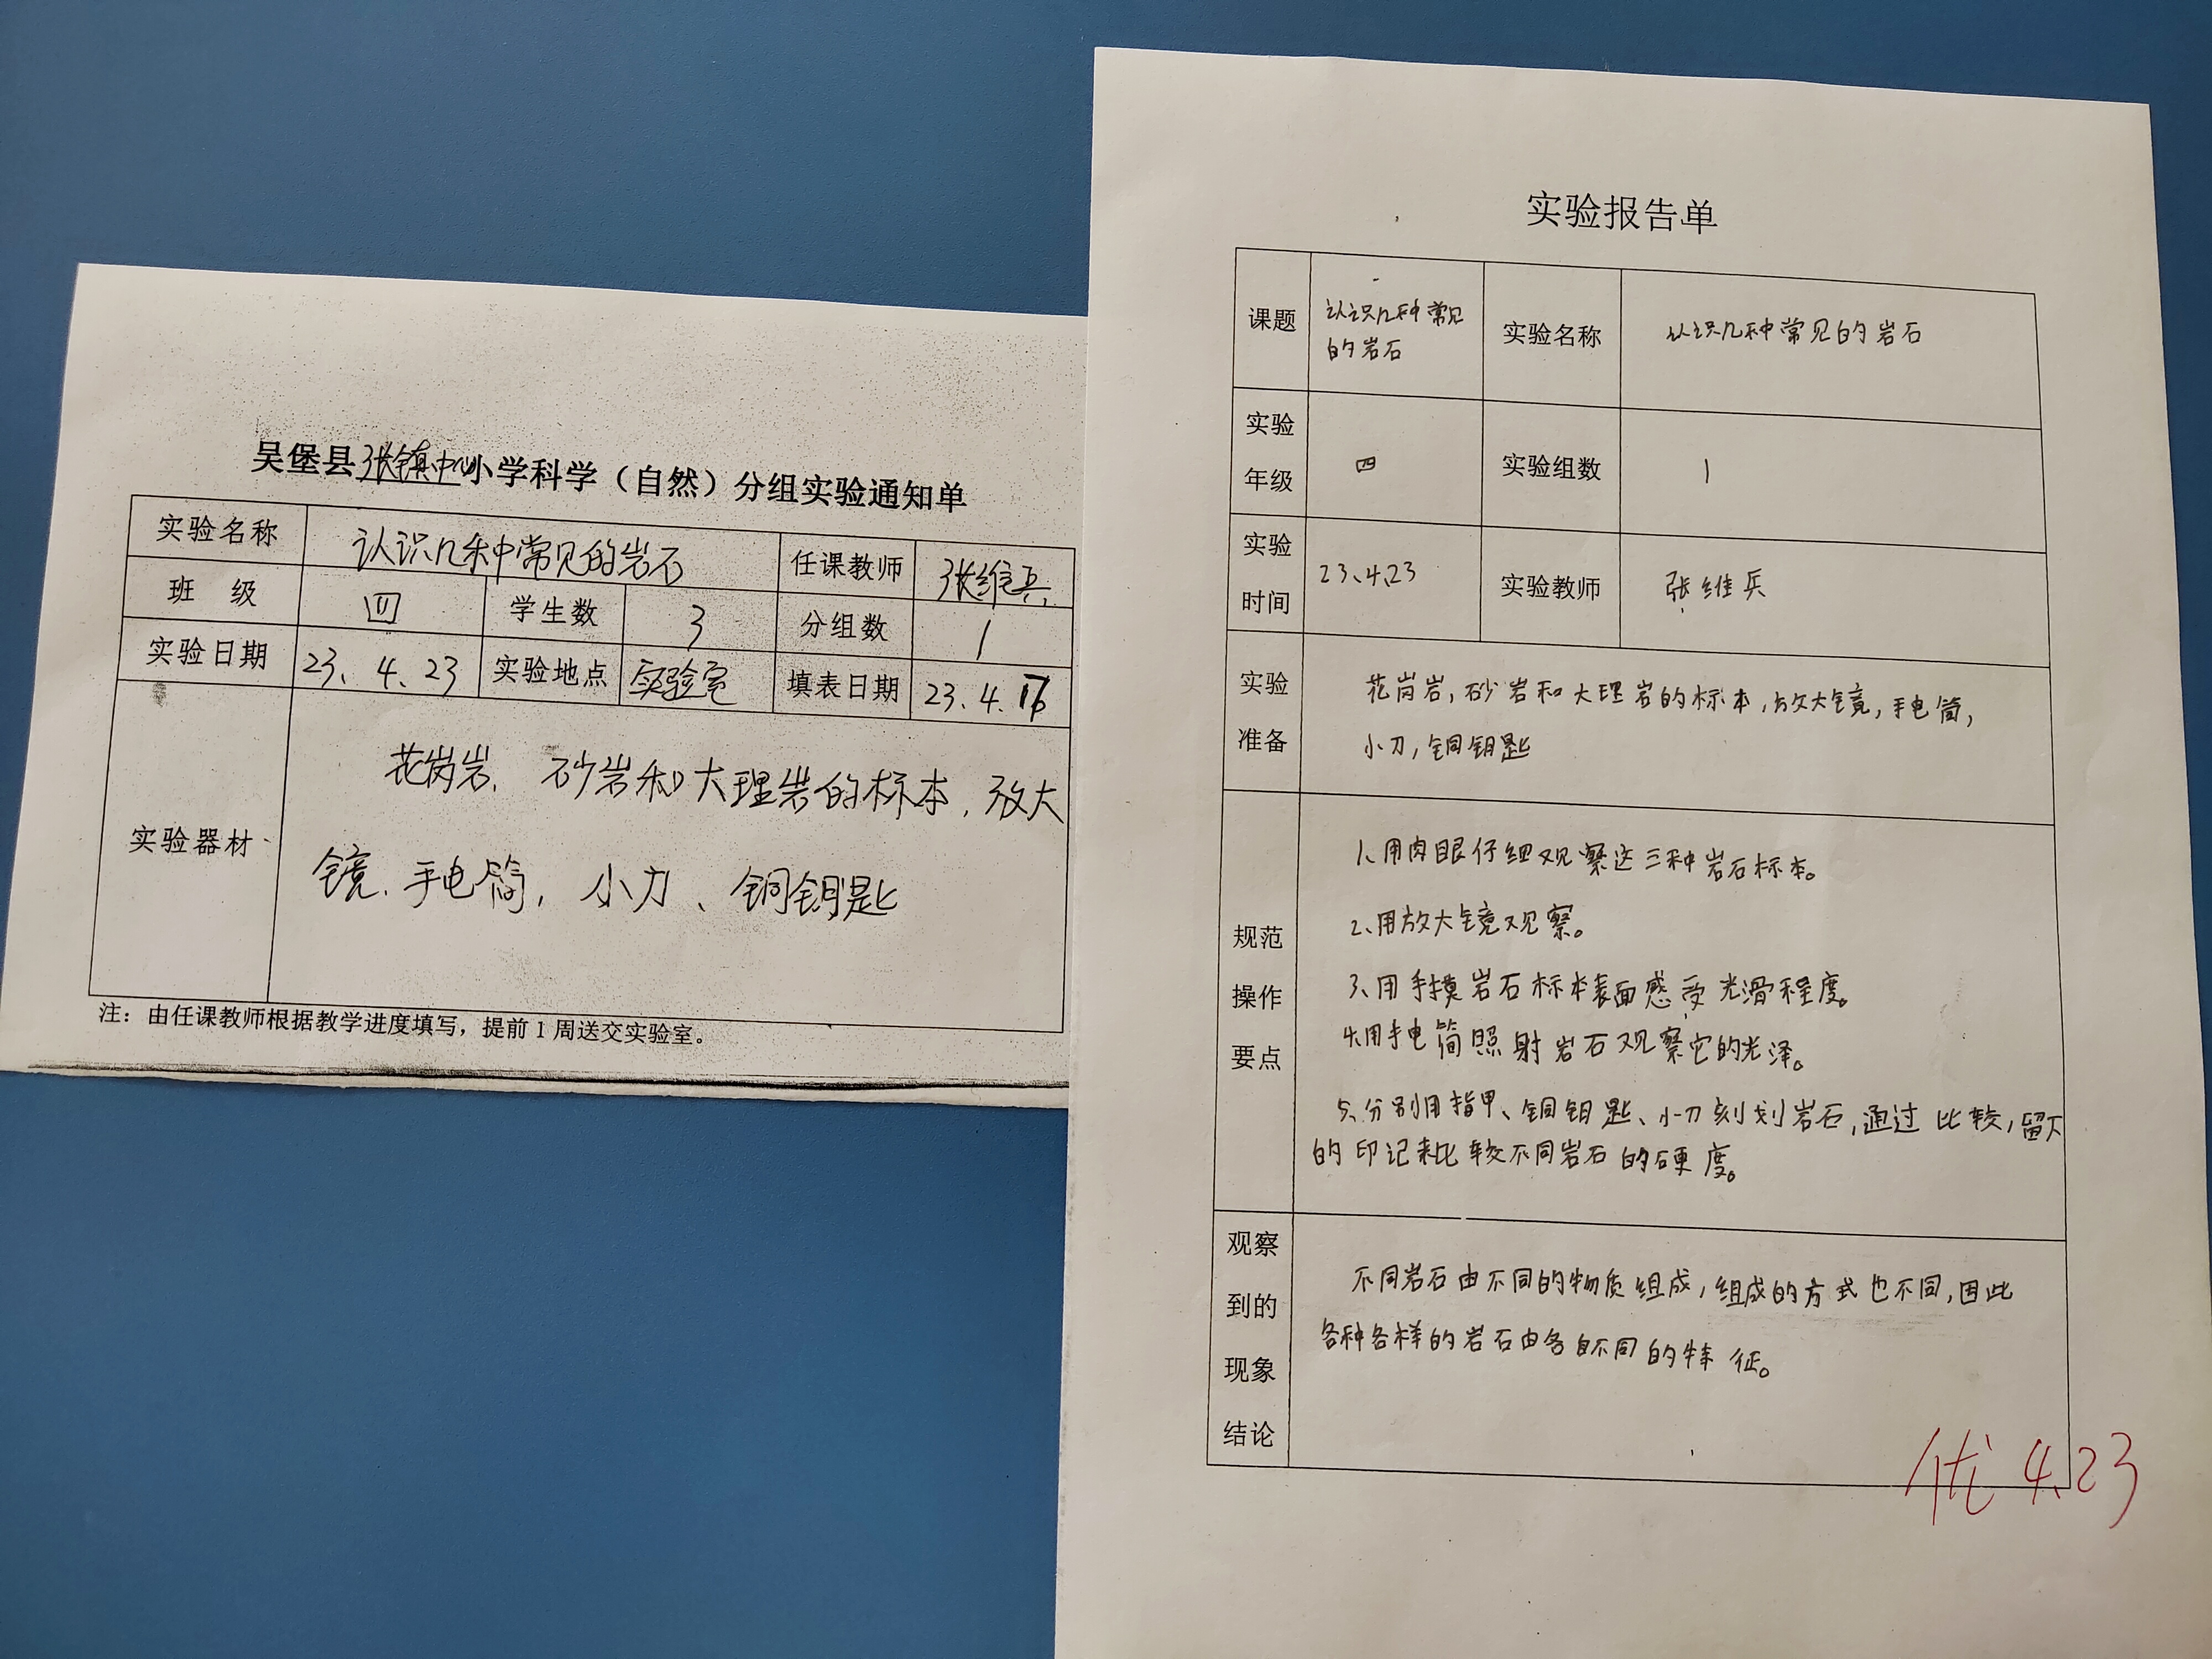 吴堡县张镇中心小学科学（自然）分组实验通知单
实验名称 认识几种常见的岩石 任课教师 张维兵
班 级 四 学生数 3 分组数 1
实验日期 23、4、23 实验地点 实验室 填表日期 23、4、
实验器材
花岗岩、砂岩和大理岩的标本，放大
镜、手电筒，小刀、铜钥匙
注：由任课教师根据教学进度填写，提前1周送交实验室。
实验报告单
课题 认识几种常见
的岩石
实验名称 认识几种常见的岩石
实验
年级
四
实验组数 1
实验
时间
23、4、23
实验教师 张维兵
实验
准备
花岗岩，砂岩和大理岩的标本，放大镜，手电筒，
小刀，铜钥匙
规范
操作
要点
1、用肉眼仔细观察这三种岩石标本。
2、用放大镜观察。
3、用手摸岩石标本表面感受光滑程度。
4、用手电筒照射岩石观察它的光泽。
5、分别用指甲、铜钥匙、小刀刻划岩石，通过比较，留下
的印记来比较不同岩石的硬度。
观察
到的
现象
结论
不同岩石由不同的物质组成，组成的方式也不同，因此
各种各样的岩石由各自不同的特征。
优 4、23